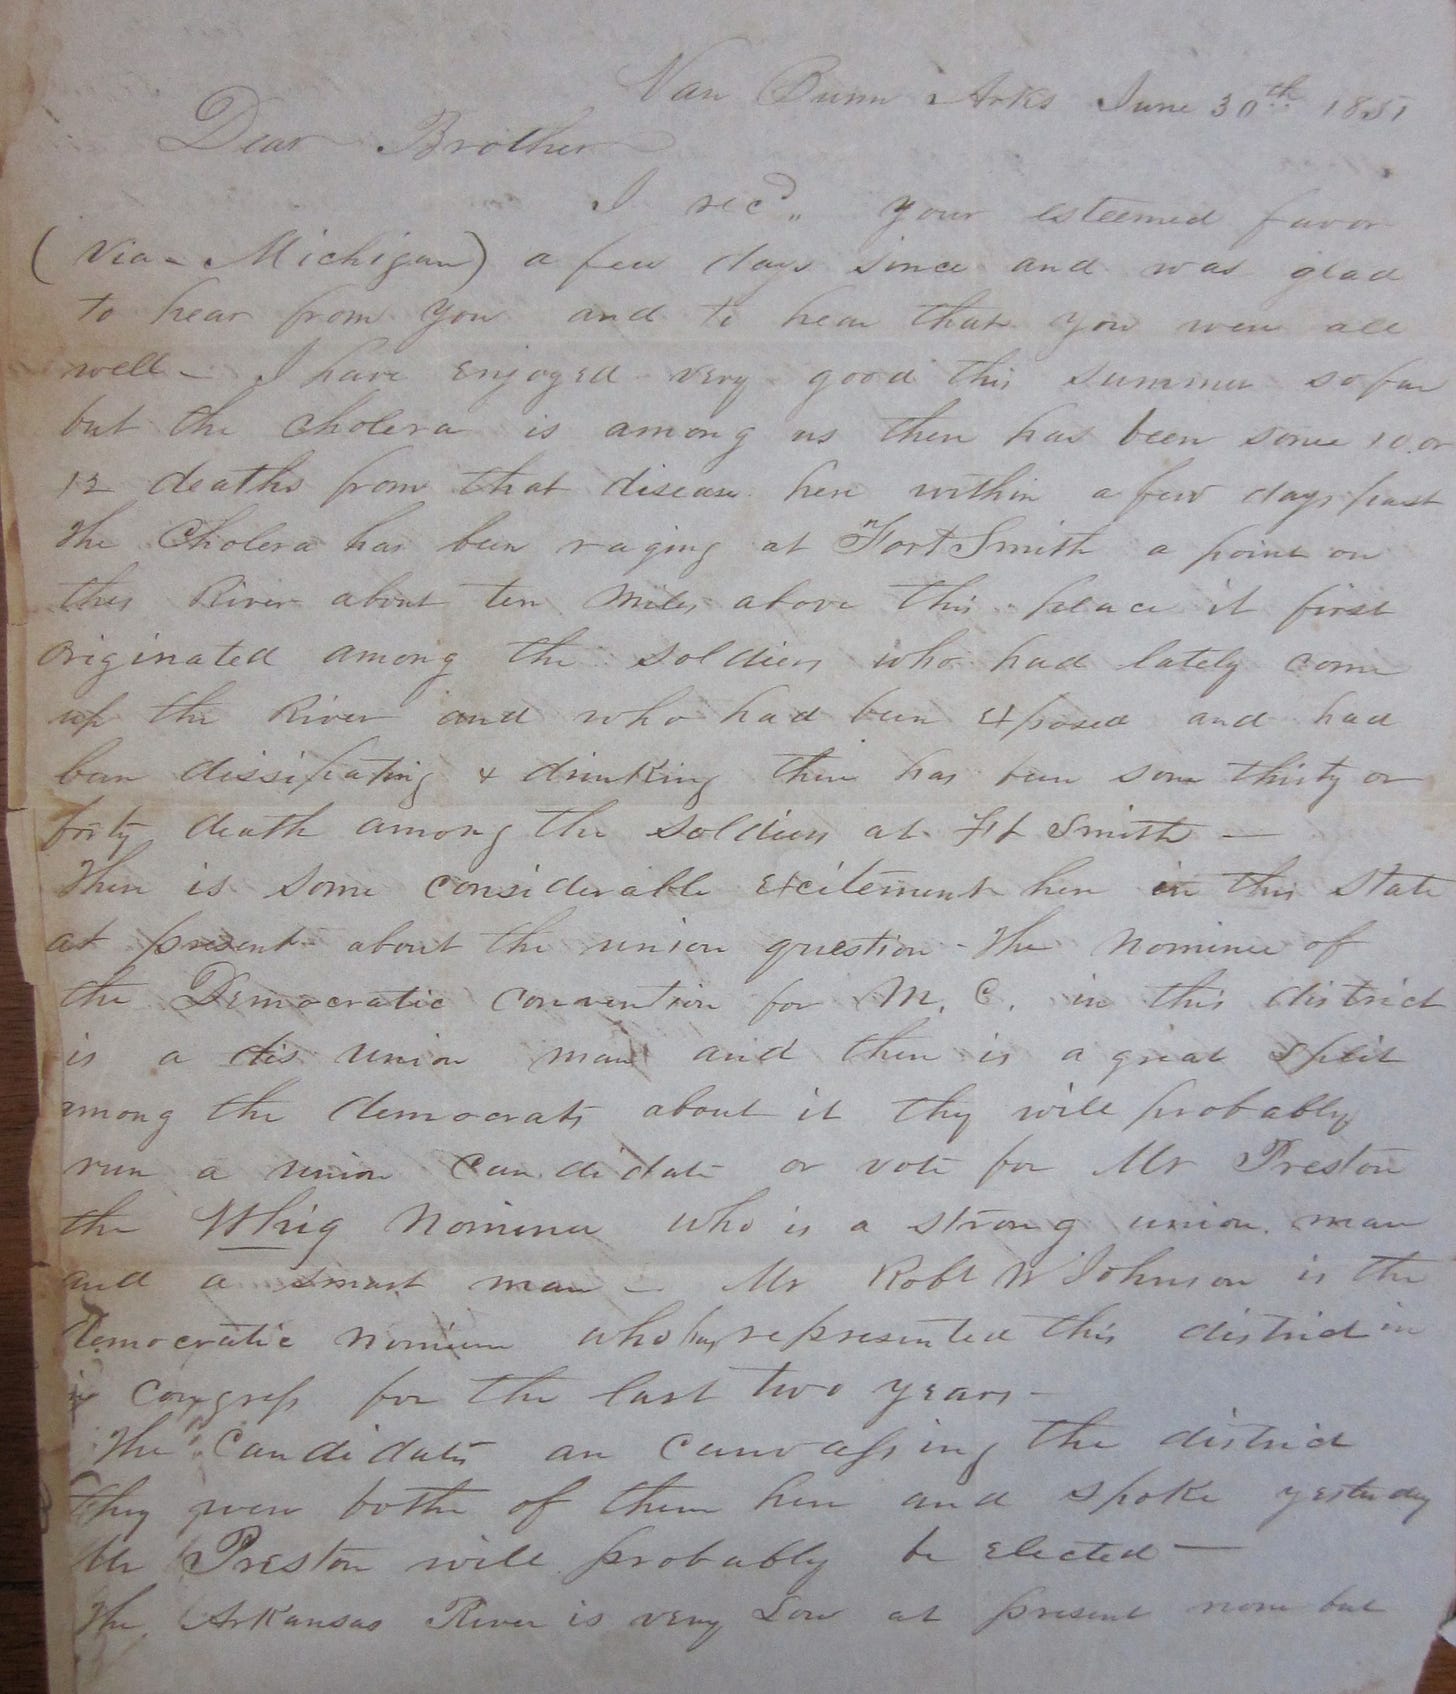 Van Buren Arks June 30th 1851
Dear Brother
I recd,, your esteemed favor
(via - Michigan) a few days since and was glad
to hear from you and to hear that you were all
well - I have enjoyed very good this summer so far
but the cholera is among us there has been some 10 or
12 deaths from that disease here within a few days past
The Cholera has been raging at Fort Smith a point on
this River about ten miles above this place it first
originated among the soldiers who had lately come
up the River and who had been exposed and had
been dissipating & drinking there has been some thirty or
forty death among the soldiers at Ft Smith —
There is some considerable excitement here in this State
at present - about the union question - The nominee of
the Democratic convention for M. C. in this district
is a dis union man and there is a great split
among the democrats about it they will probably
run a union candidate or vote for Mr Preston
the Whig Nominee who is a strong union man
and a smart man - Mr Robt W Johnson is the
Democratic nominee who has represented this district in
in Congress for the last two years -
The Candidates are canvassing the district
They were both of them here and spoke yesterday
Mr Preston will probably be elected —
The Arkansas River is very Low at present none but